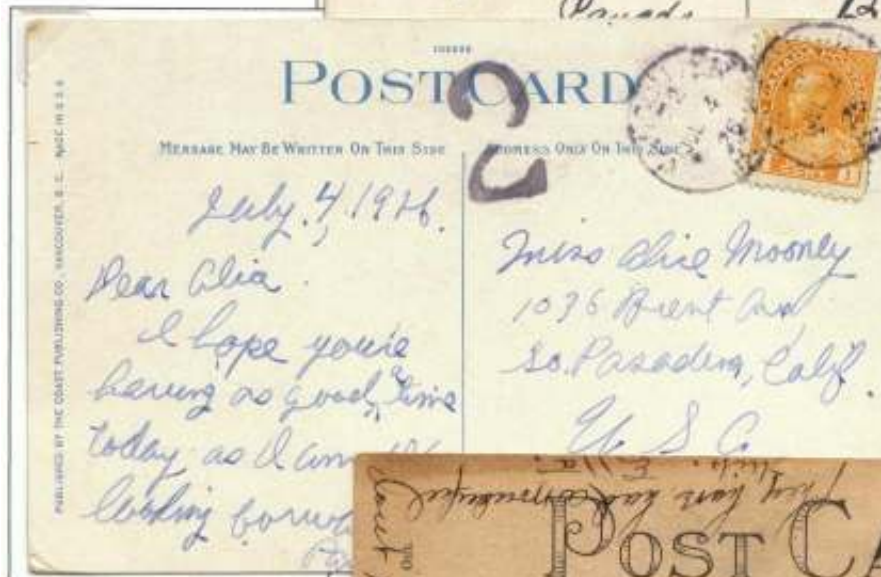 Canada
POST CARD
MESSAGE MAY BE WRITTEN ON THIS SIDE
ADDRESS ONLY ON THIS SIDE
PUBLISHED BY THE COAST PUBLISHING CO., VANCOUVER, B. C. MADE IN U S A
July, 4, 1926.
Dear Alice
I hope you're
having as good a time
today as I am
looking
Miss Alice Mooney
1036 Brent Ave
So. Pasadena, Calif.
U S A
They have had
POST CA